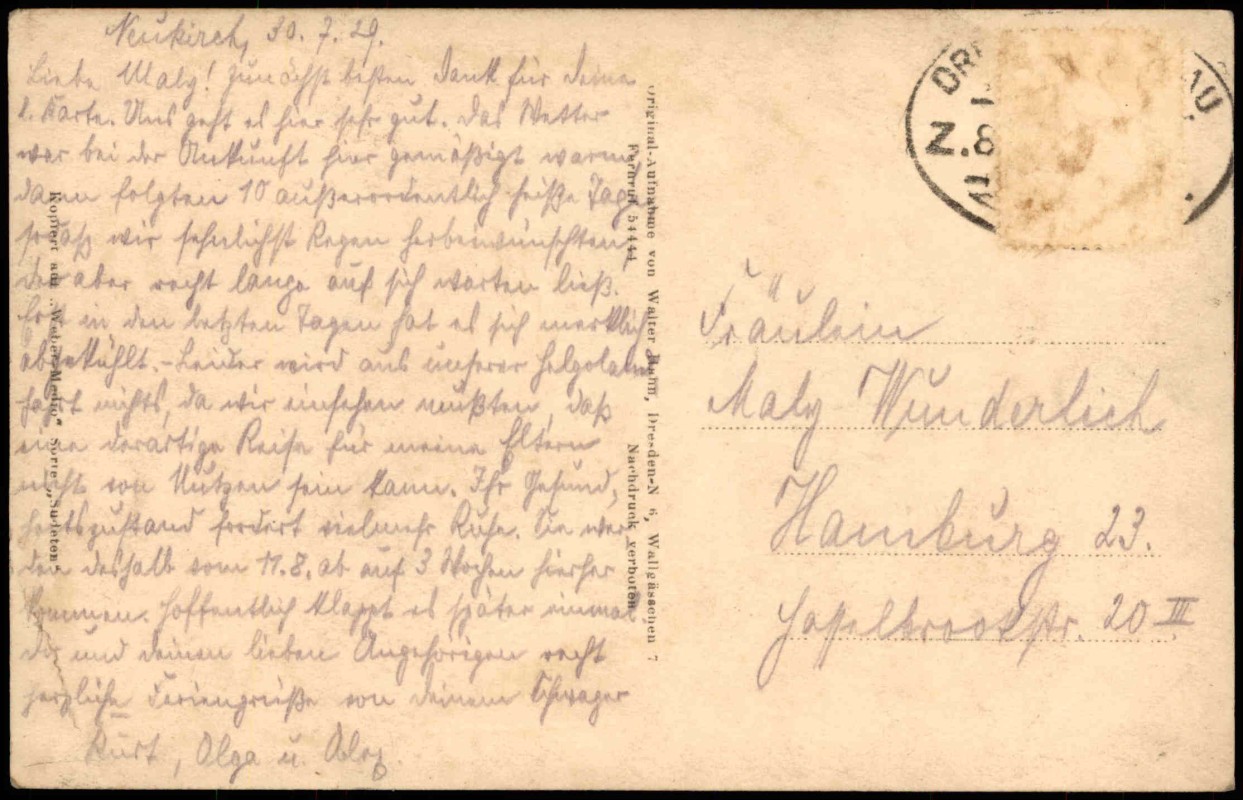 Neukirch, 30. 7. 29.
Liebe Maly! Zunächst besten Dank für deine
l. Karte. Uns geht es hier sehr gut. Das Wetter
war bei der Ankunft hier gemäßigt warm,
dann folgten 10 außerordentlich heiße Tage
sodaß wir sehnlichst Regen herbeiwünschten,
der aber recht lange auf sich warten ließ.
Erst in den letzten Tagen hat es sich merklich
abgekühlt. - Leider wird aus unserer Helgoland
fahrt nichts, da wir einsehen mußten, daß
eine derartige Reise für meine Eltern
nicht von Nutzen sein kann. Ihr Gesund-
heitszustand fordert vielmehr Ruhe. Sie wer-
den deshalb vom 11.8. ab auf 3 Wochen hierher
kommen. Hoffentlich klappt es später einmal.
Dir und deinen lieben Angehörigen recht
herzliche Feriengrüße von deinem Schwager
Kurt, Olga u.
Kopiert auf „Weber-Medio“ Sorte „Sudeten“
Original-Aufnahme von Walter Hahn, Dresden-N 6, Wallgässchen
Fernruf 54441 Nachdruck verboten
DRE AU
Z. 8
Fräulein
Maly Wunderlich
Hamburg 23.
Hasselbrookstr. 20 III